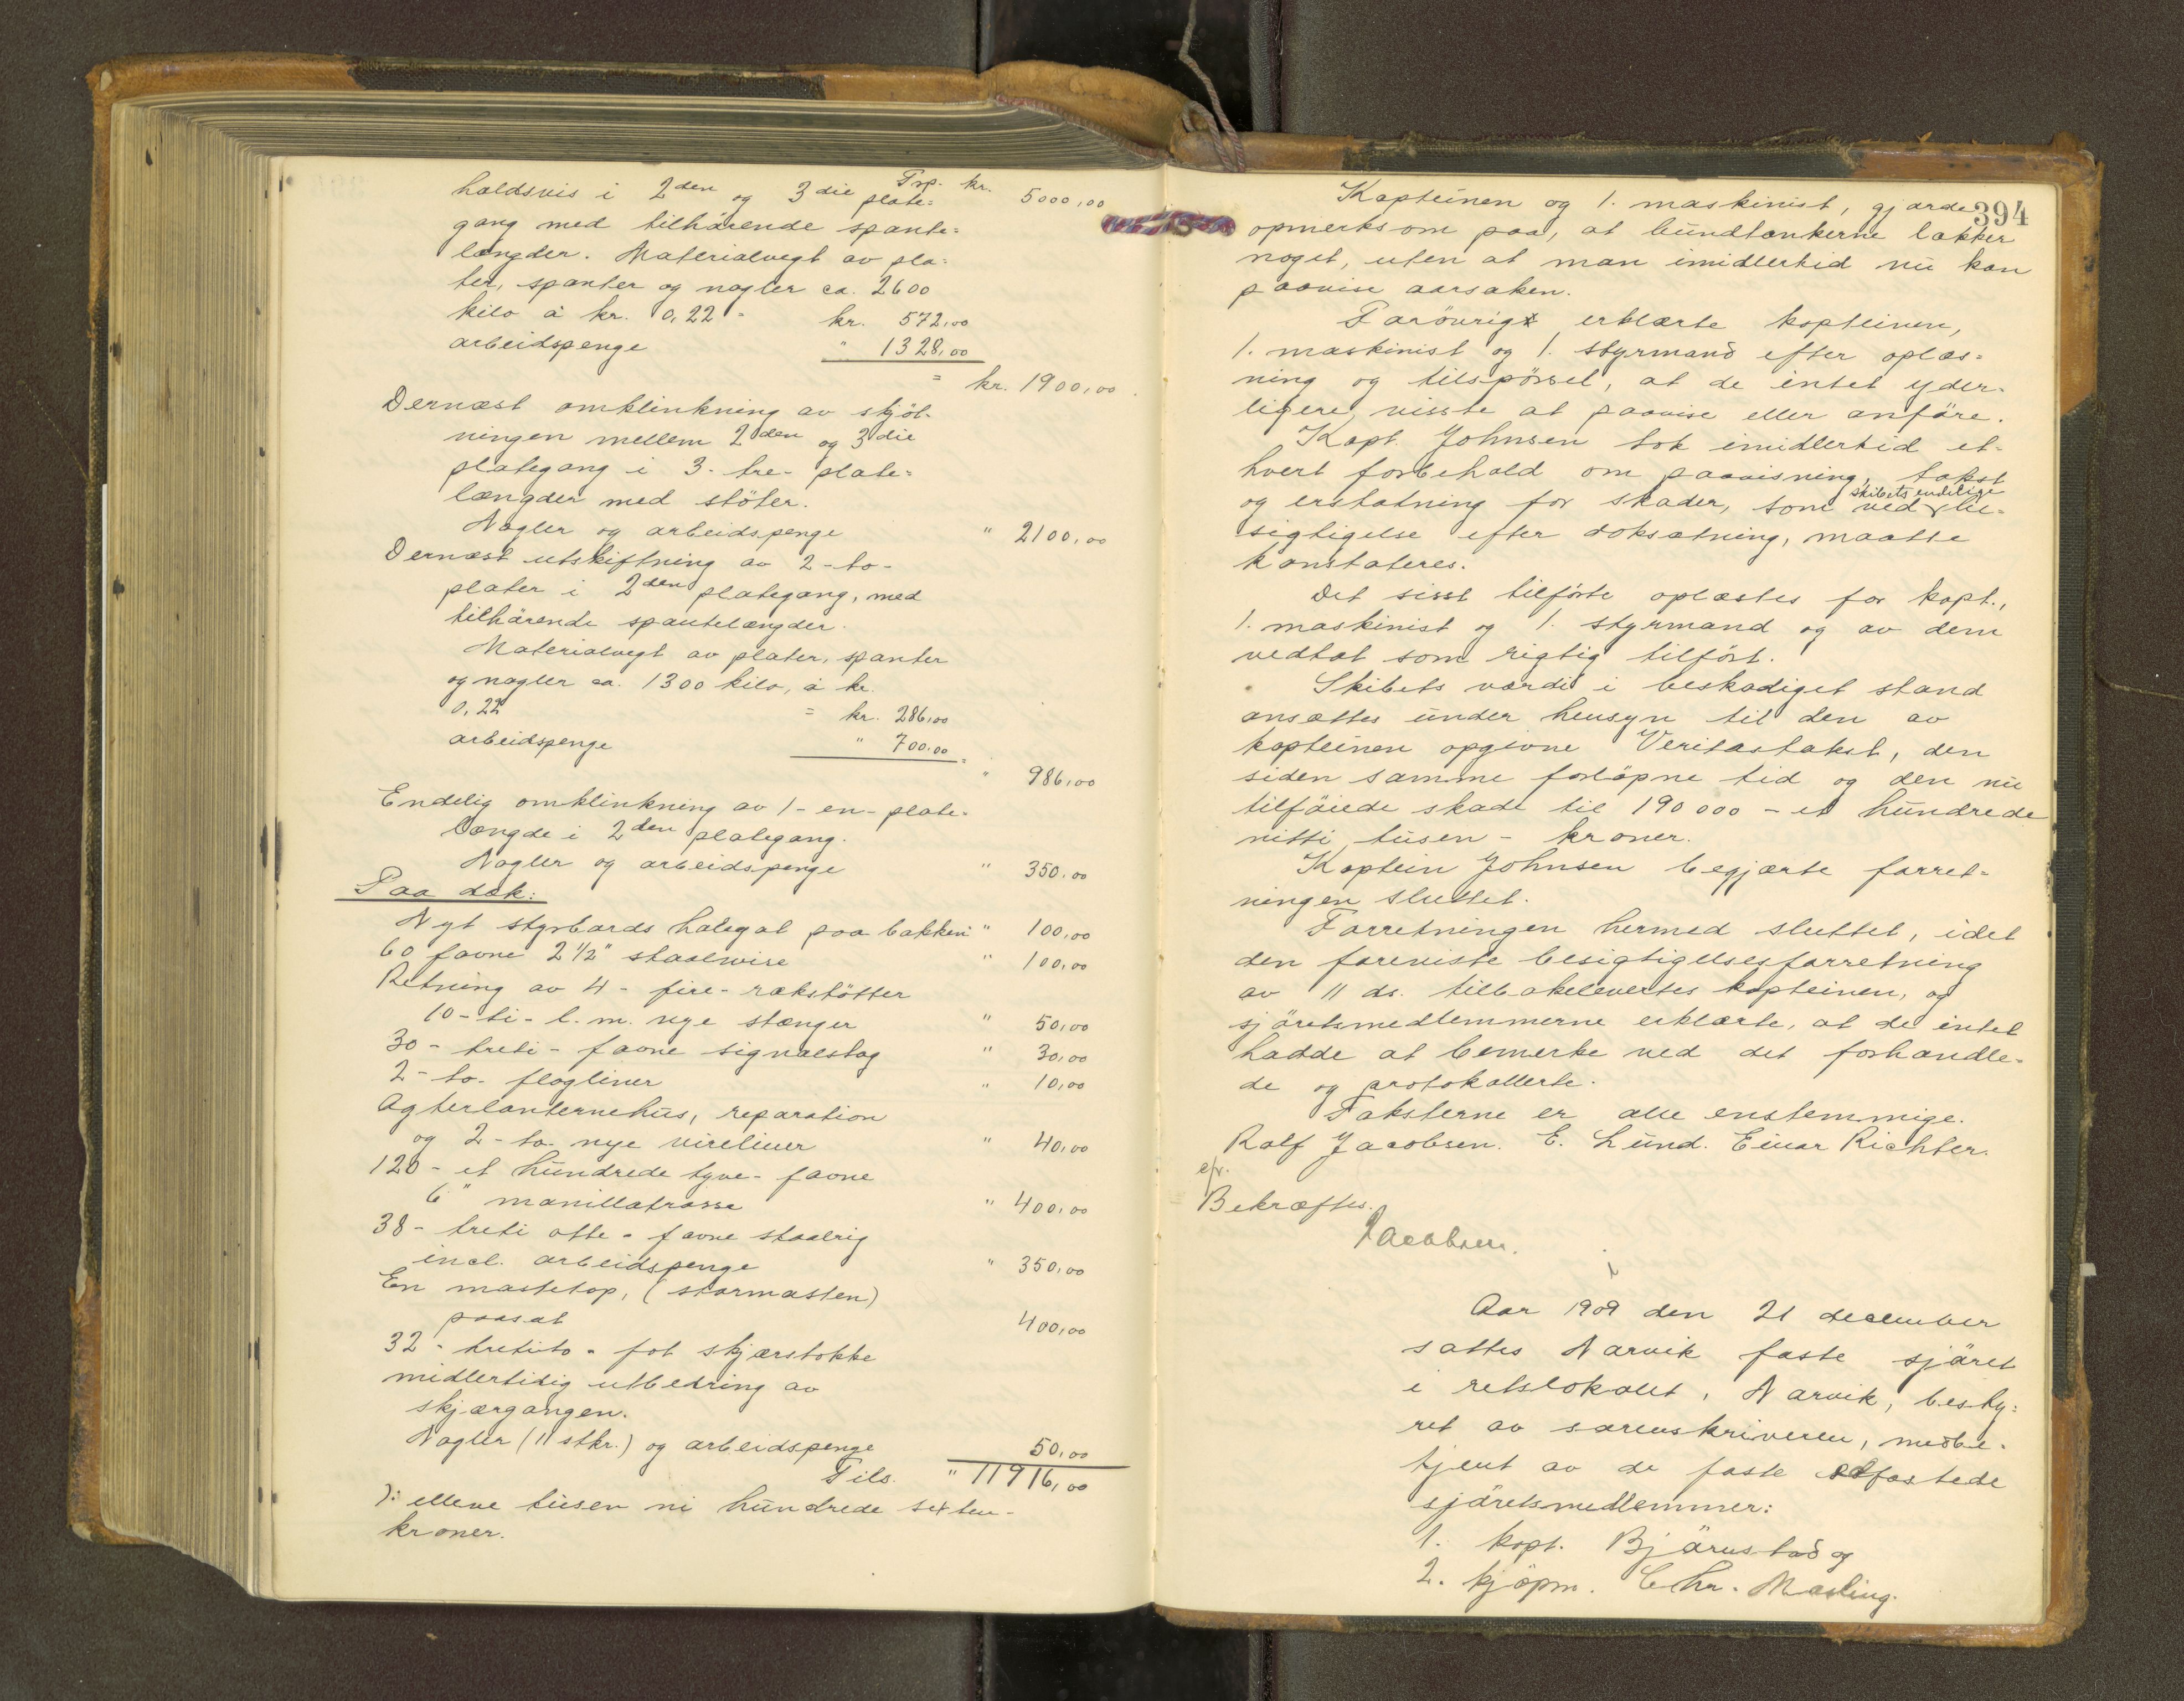 Trp. kr. 5000,00
holdsvis i 2den og 3die plate=
gang med tilhörende spante=
længder. Materialvegt av pla=
ter, spanter og nagler ca. 2600
kilo à kr. 0,22 = kr. 572,00
arbeidspenge " 1328,00
= kr. 1900,00
Dernæst omklinkning av skjöt-
ningen mellem 2den og 3die
plategang i 3- tre- plate=
længder med stöter.
Nagler og arbeidspenge " 2100,00
Dernæst utskiftning av 2-to-
plater i 2den plategang, med
tilhörende spantelængder.
Materialvegt av plater, spanter
og nagler ca. 1300 kilo, à kr.
0,22 = kr. 286,00
arbeidspenge " 700.00 =
" 986,00
Endelig omklinkning av 1-en-plate-
længde i 2den plategang.
Nagler og arbeidspenge " 350.00
Paa dæk:
Nyt styrbords halegat paa bakken " 100,00
60 favne 2 1/2" staalwire " 100,00
Retning av 4- fire- rækstötter
10-ti-l.m. nye stænger " 50,00
30- treti- favne signalstag " 30,00
2-to- flagliner " 10,00
Agterlanternehus, reparation
og 2-to- nye vireliner " 40,00
120- et hundrede tyve- favne
6" manillatrosse " 400,00
38- treti otte- favne staalrig
incl. arbeidspenge " 350,00
En mastetop, (stormasten)
paasat 400,00
32- tretito- fot skjærstokke
midlertidig utbedring av
skjærgangen.
Nagler (11 stkr.) og arbeidspenge 50,00
Tils. " 11916,00
): elleve tusen ni hundrede sexten-
kroner.
394
Kapteinen og 1. maskinist, gjorde
opmerksom paa, at bundtankerne lækker
noget, uten at man imidlertid nu kan
paavise aarsaken.
Forövrigt erklærte kapteinen,
1. maskinist og 1. styrmand efter oplæs=
ning og tilspörsel, at de intet yder-
ligere visste at paavise eller anföre.
Kapt. Johnsen tok imidlertid et-
hvert forbehold om paavisning, takst
skibets endelige
og erstatning for skader, som ved be=
sigtigelse efter doksætning, maatte
konstateres.
Det sisst tilförte oplæstes for kapt.,
1. maskinist og 1. styrmand og av dem
vedtat som rigtig tilfört.
Skibets værdi i beskadiget stand
ansættes under hensyn til den av
kapteinen opgivne Veritastakst, den
siden samme forlöpne tid og den nu
tilföiede skade til 190 000 - et hundrede
nitti tusen - kroner.
Kaptein Johnsen begjærte forret=
ningen sluttet.
Forretningen hermed sluttet, idet
den foreviste besigtigelsesforretning
av 11 ds. tilbakelevertes kapteinen, og
sjöretsmedlemmerne erklærte, at de intet
hadde at bemerke ved det forhandle-
de og protokollerte.
Taksterne er alle enstemmige.
Rolf Jacobsen. E. Lund. Einar Richter.
efr.
Bekræftes.
Jacobsen.
Aar 1909 den 21 december
sattes Narvik faste sjöret
i retslokalet, Narvik, besty=
ret av sorenskriveren, medbe-
tjent av de faste edfæstede
sjöretsmedlemmer:
1. kapt. Bjørnstad og
2. kjöpm. Chr. Mæsling.